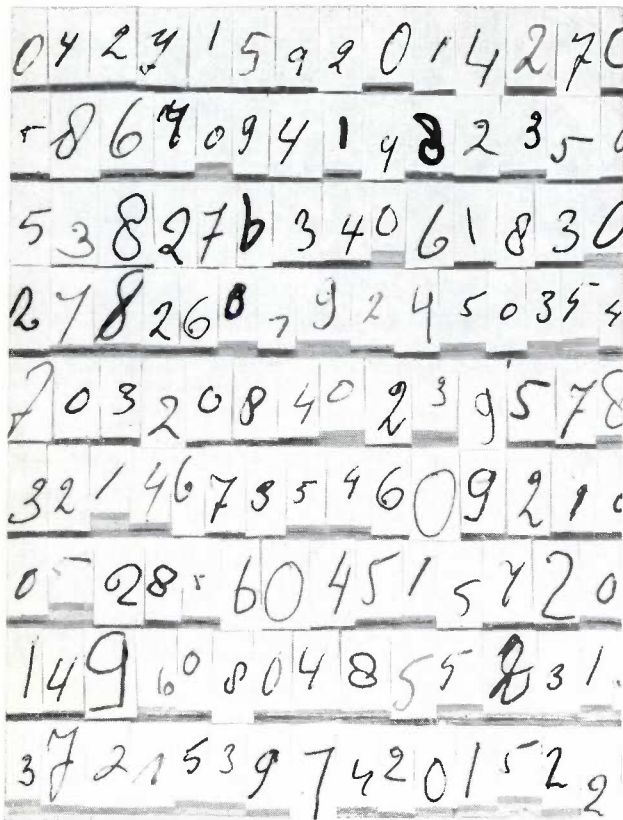 0 4 2 4 1 5 9 2 0 1 4 2 7 0
5 8 6 7 0 9 4 1 9 8 2 3 5 0
5 3 8 2 7 6 3 4 0 6 1 8 3 0
2 7 8 2 6 8 7 9 2 4 5 0 3 5 4
7 0 3 2 0 8 4 0 2 3 9 5 7 8
3 2 1 4 6 7 3 5 4 6 0 9 2 1 0
0 5 2 8 5 6 0 4 5 1 5 7 2 0
1 4 9 6 0 8 0 4 8 5 5 8 3 1
3 7 2 1 5 3 9 7 4 2 0 1 5 2 2